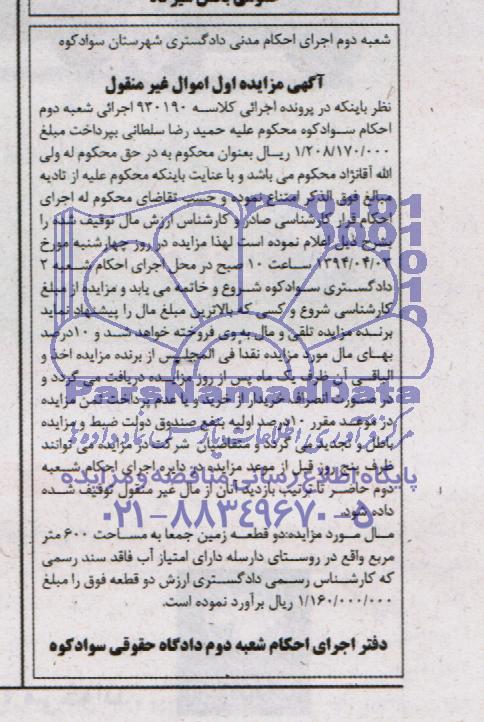 شعبه دوم اجرای احکام مدنی دادگستری شهرستان سوادکوه
آگهی مزایده اول اموال غیر منقول
نظر باینکه در پرونده اجرائی کلاسه ۹۳۰۱۹۰ اجرائی شعبه دوم
احکام سوادکوه محکوم علیه حمید رضا سلطانی بپرداخت مبلغ
۱/۲۰۸/۱۷۰/۰۰۰ ریال بعنوان محکوم به در حق محکوم له ولی
الله آقانژاد محکوم می باشد و با عنایت باینکه محکوم علیه از تادیه
مبالغ فوق الذکر امتناع نموده و حسب تقاضای محکوم له اجرای
احکام قرار کارشناسی صادر و کارشناس ارزش مال توقیف شده را
بشرح ذیل اعلام نموده است لهذا مزایده در روز چهارشنبه مورخ
۱۳۹۴/۰۴/۰۳ ساعت ۱۰ صبح در محل اجرای احکام شعبه ۲
دادگستری سوادکوه شروع و خاتمه می یابد و مزایده از مبلغ
کارشناسی شروع و کسی که بالاترین مبلغ مال را پیشنهاد نماید
برنده مزایده تلقی و مال به وی فروخته خواهد شد و ۱۰درصد
بهای مال مورد مزایده نقدا فی المجلس از برنده مزایده اخذ و
الباقی آن ظرف یک ماه پس از روز مزایده دریافت می گردد و
در صورت انصراف خریدار از خرید و یا عدم پرداخت ثمن مزایده
در موعد مقرر ۱۰درصد اولیه بنفع صندوق دولت ضبط و مزایده
باطل و تجدید می گردد و متقاضیان شرکت در مزایده می توانند
ظرف پنج روز قبل از موعد مزایده در دایره اجرای احکام شعبه
دوم حاضر تا ترتیب بازدید آنان از مال غیر منقول توقیف شده
داده شود.
مال مورد مزایده:دو قطعه زمین جمعا به مساحت ۶۰۰ متر
مربع واقع در روستای دارسله دارای امتیاز آب فاقد سند رسمی
که کارشناس رسمی دادگستری ارزش دو قطعه فوق را مبلغ
۱/۱۶۰/۰۰۰/۰۰۰ ریال برآورد نموده است.
دفتر اجرای احکام شعبه دوم دادگاه حقوقی سوادکوه
ParsNamadData
مرکز فرآوری اطلاعات پارس نماد داده ها
پایگاه اطلاع رسانی مناقصه و مزایده
۰۲۱-۸۸۳۴۹۶۷۰-۵